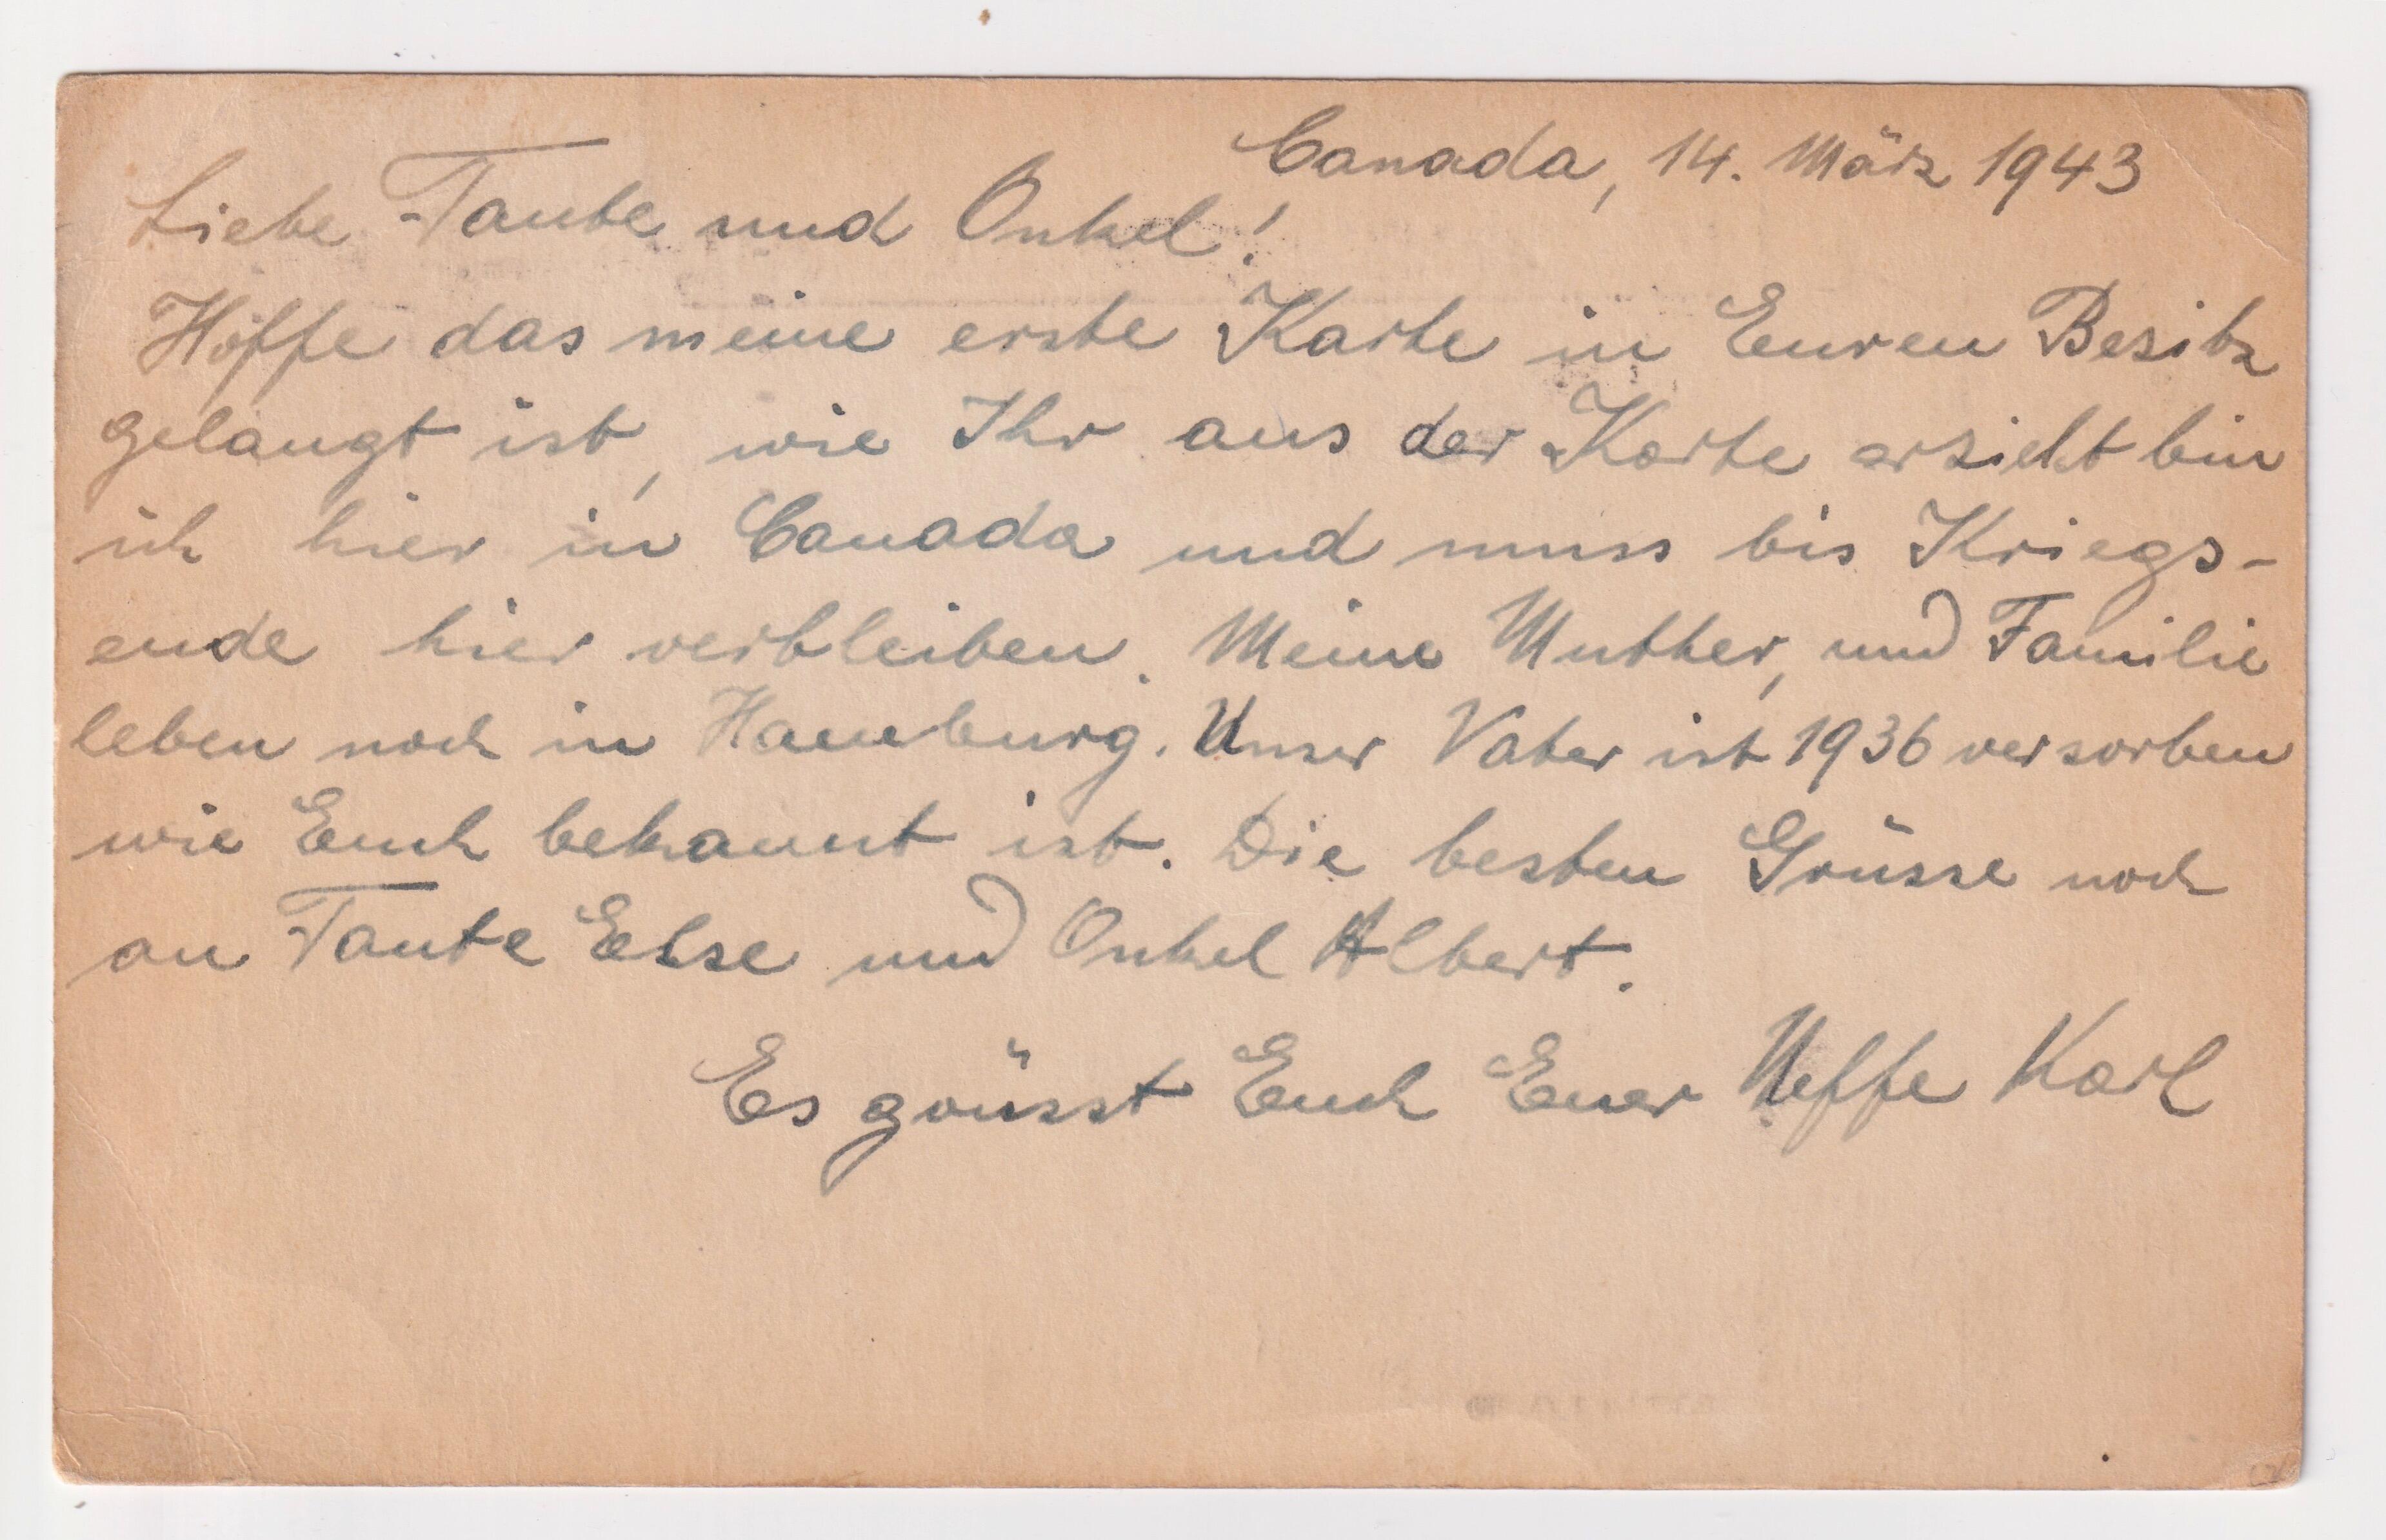 Canada, 14. März 1943
Liebe Tante und Onkel!
Hoffe das meine erste Karte in Euren Besitz
gelangt ist, wie Ihr aus der Karte ersieht bin
ich hier in Canada und muss bis Kriegs-
ende hier verbleiben. Meine Mutter, und Familie
leben noch in Hamburg. Unser Vater ist 1936 versorben
wie Euch bekannt ist. Die besten Grüsse noch
an Tante Else und Onkel Albert.
Es grüsst Euch Euer Neffe Karl